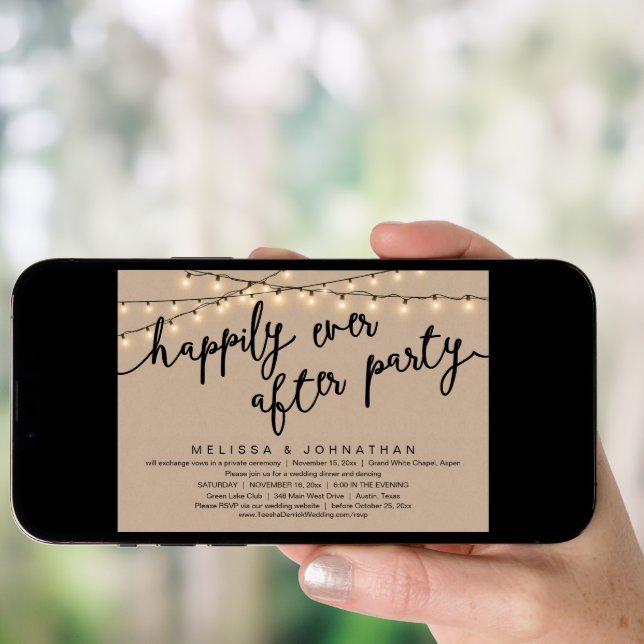 happily ever
after party
MELISSA & JOHNATHAN
will exchange vows in a private ceremony | November 15, 20xx | Grand White Chapel, Aspen
Please join us for a wedding dinner and dancing
SATURDAY | NOVEMBER 16, 20xx | 6:00 IN THE EVENING
Green Lake Club | 346 Main West Drive | Austin, Texas
Please RSVP via our wedding website | before October 25, 20xx
www.TeeshaDerrickWedding.com/rsvp